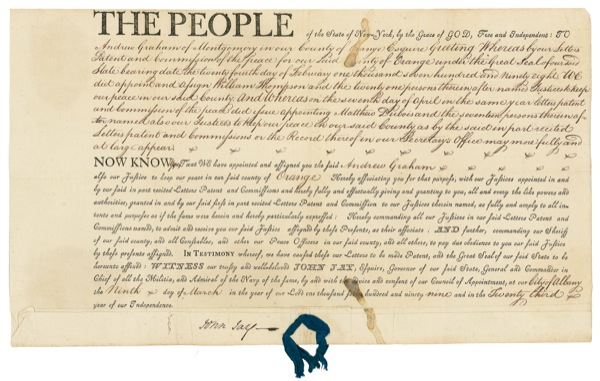 THE PEOPLE of the State of New-York, by the Grace of GOD, Free and Independent: TO
Andrew Graham of Montgomery in our County of Orange Esquire Greeting Whereas by our Letters
Patent and Commission of the peace for our said County of Orange under the Great Seal of our said
State bearing date the twenty fourth day of February one thousand seven hundred and Ninety eight We
did appoint and assign William Thompson and the twenty one persons therein after named Justices to keep
our peace in our said County. And Whereas on the seventh day of April in the same year letters patent
and Commission of the peace did issue appointing Matthew Dubois and the seventeen persons therein af-
ter named also our Justices to keep our peace in our said County as by the said in part recited
Letters patent and Commissions or the Record thereof in our Secretary's Office may more fully and
at large appear
NOW KNOW you, That We have appointed and assigned you the said Andrew Graham
also our Justice to keep our peace in our said county of Orange Hereby associating you for that purpose, with our Justices appointed in and
by our said in part recited Letters Patent and Commissions and hereby fully and effectually giving and granting to you, all and every the like powers and
authorities, granted in and by our said first in part recited Letters Patent and Commission to our Justices therein named, as fully and amply to all in-
tents and purposes as if the same were herein and hereby particularly expressed: Hereby commanding all our Justices in our said Letters Patent and
Commissions named, to admit and receive you our said Justice assigned by these Presents, as their associate: AND further, commanding our Sheriff
of our said county; and all Constables, and other our Peace Officers in our said county, and all others, to pay due obedience to you our said Justice
by these presents assigned. IN TESTIMONY whereof, we have caused these our Letters to be made Patent, and the Great Seal of our said State to be
hereunto affixed: WITNESS our trusty and well beloved JOHN JAY, Esquire, Governor of our said State, General and Commander in
Chief of all the Militia, and Admiral of the Navy of the same, by and with the advice and consent of our Council of Appointment, at our City of Albany
the Ninth day of March in the year of our Lord one thousand seven hundred and ninety nine and in the Twenty third
year of our Independence.
John Jay